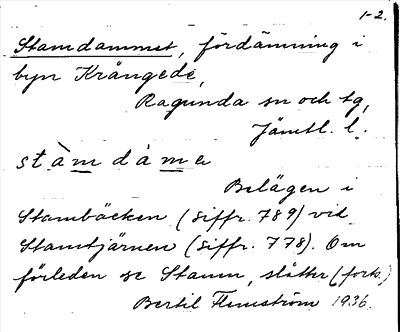 1-2.
Stamdammet, fördämning i
byn Krångede,
Ragunda sn och tg,
Jämtl. l.
stàmdàme
Belägen i
Stambäcken (siffr. 789) vid
Stamtjärnen (siffr. 778). Om
förleden se Stamm, slåtter (forts.)
Bertil Flemström 1936.